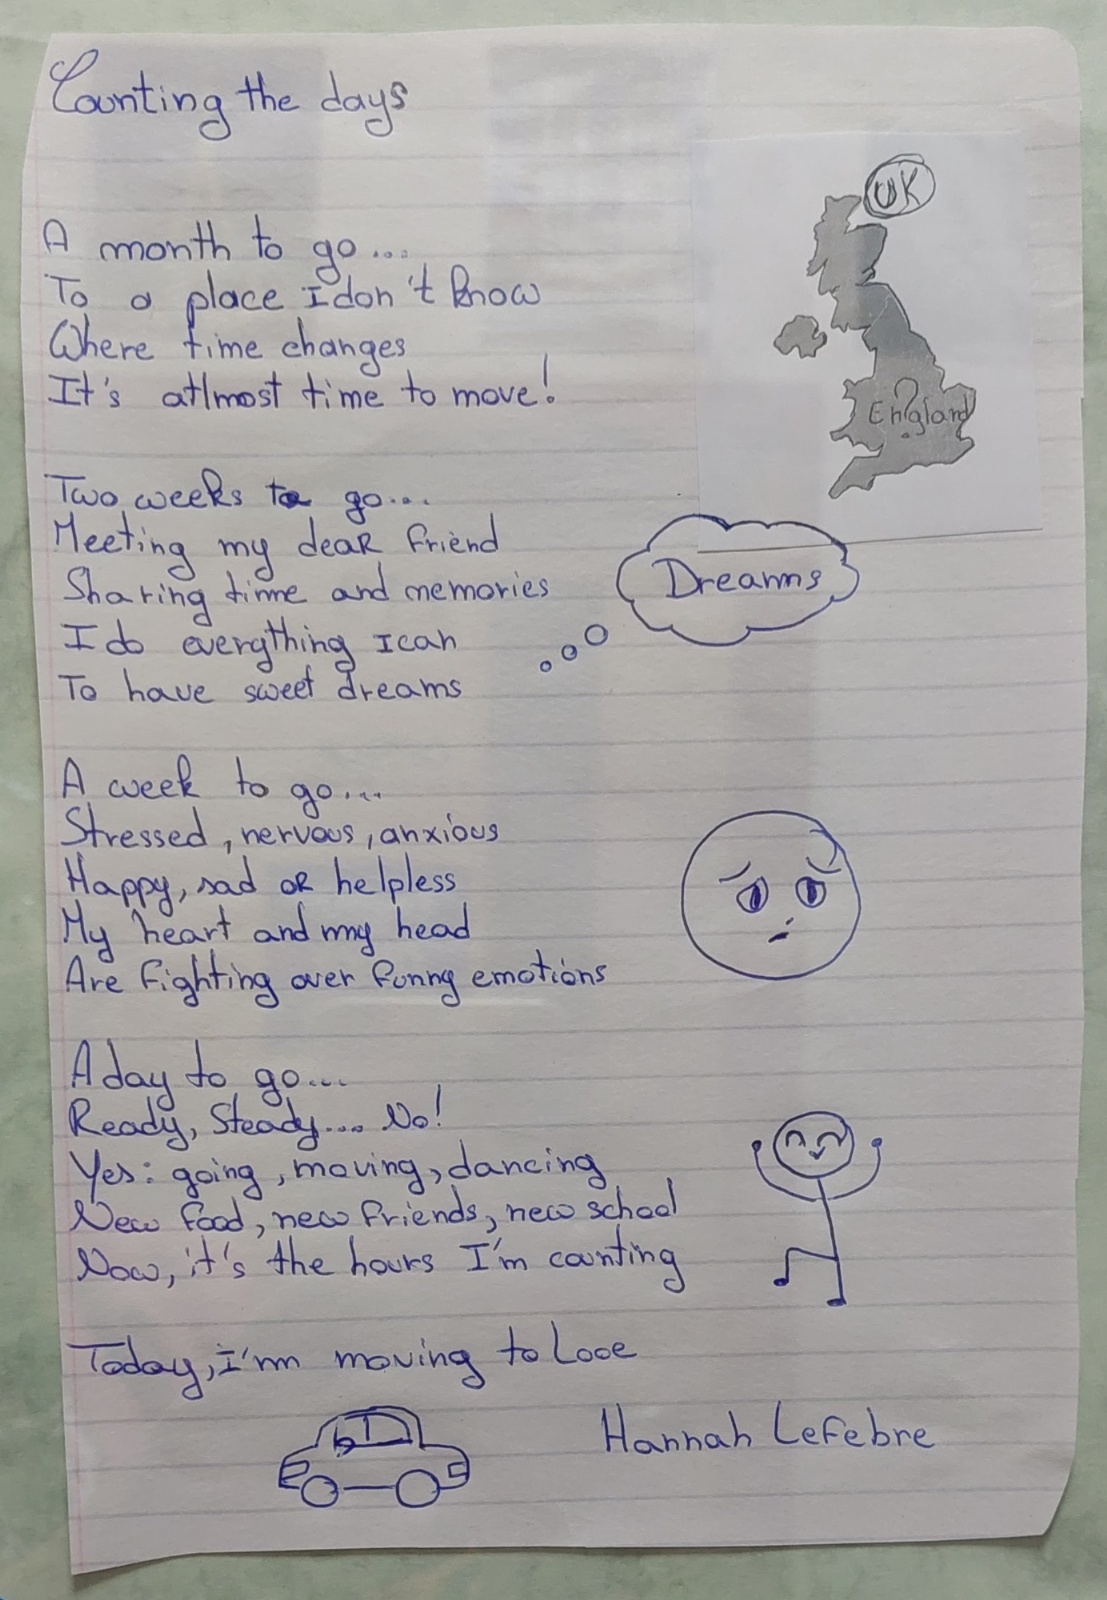 Counting the days
UK
A month to go...
To a place I don't know
Where time changes
It's atlmost time to move!
England
?
Two weeks to go...
Meeting my dear friend
Sharing time and memories
I do everything I can
To have sweet dreams
Dreams
A week to go...
Stressed, nervous, anxious
Happy, sad or helpless
My heart and my head
Are fighting over funny emotions
A day to go...
Ready, Steady.... No!
Yes: going, moving, dancing
New food, new friends, new school
Now, it's the hours I'm counting
Today, I'm moving to Looe
Hannah Lefebre